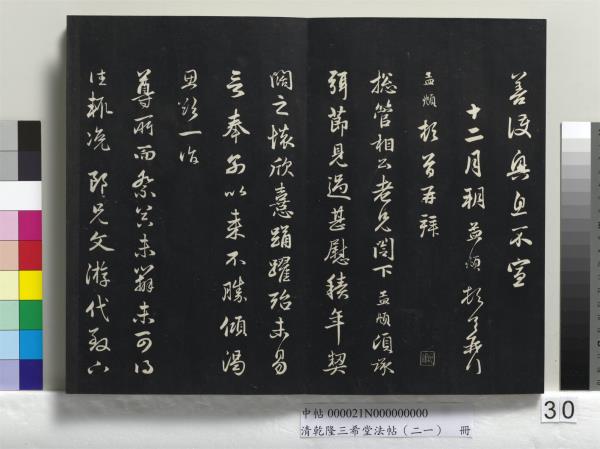 善不宣
十二月孟頫頓首
孟頫頓首再拜
總管相公老兄閣下孟頫頃承
弭節見過甚慰積年契
闊之懷欣憙踊躍殆未易
言奉別以來不勝傾渴
思欲一詣
尊所而未未可得
況郎兄文游代致
中帖 000021N000000000
清乾隆三希堂法帖（二一） 冊
30